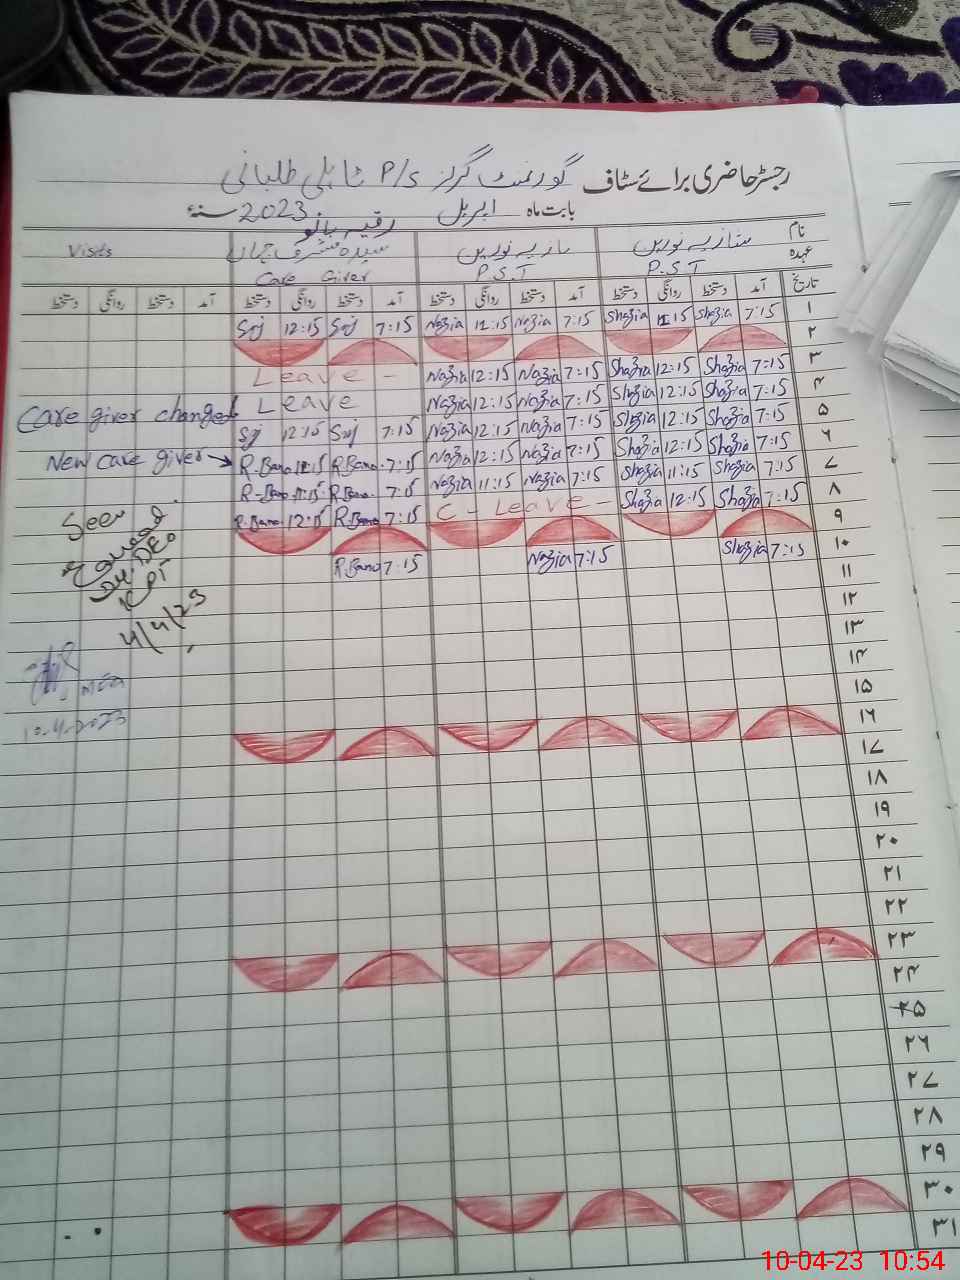 رجسٹر حاضری برائے سٹاف گورنمنٹ گرلز P/S ٹاہلی طلبانی
بابت ماہ اپریل 2023 سنۂ
رقیہ بانو
نام شازیہ نورین نازیہ نورین سیدہ مشرف جہاں Visits
عہدہ P.S.T P.S.T Care Giver
تاریخ آمد دستخط روانگی دستخط آمد دستخط روانگی دستخط آمد دستخط روانگی دستخط آمد دستخط روانگی دستخط
۱ 7:15 Shazia 11:15 Shazia 7:15 Nazia 11:15 Nazia 7:15 Saj 12:15 Saj
۲
۳ 7:15 Shazia 12:15 Shazia 7:15 Nazia 12:15 Nazia Leave -
۴ 7:15 Shazia 12:15 Shazia 7:15 Nazia 12:15 Nazia Leave
Care giver changed
۵ 7:15 Shazia 12:15 Shazia 7:15 Nazia 12:15 Nazia 7:15 Saj 12:15 Saj
۶ 7:15 Shazia 12:15 Shazia 7:15 Nazia 12:15 Nazia 7:15 R.Bano 11:15 R.Bano
New care giver →
۷ 7:15 Shazia 11:15 Shazia 7:15 Nazia 11:15 Nazia 7:15 R.Bano 11:15 R-Bano
۸ 7:15 Shazia 12:15 Shazia C - Leave - 7:15 R.Bano 12:15 R.Bano
۹
۱۰ 7:15 Shazia 7:15 Nazia 7:15 R.Bano
Seen
Dy. DEO
4/4/23
MEA
10-4-2023
۱۱
۱۲
۱۳
۱۴
۱۵
۱۶
۱۷
۱۸
۱۹
۲۰
۲۱
۲۲
۲۳
۲۴
۲۵
۲۶
۲۷
۲۸
۲۹
۳۰
۳۱
10-04-23 10:54